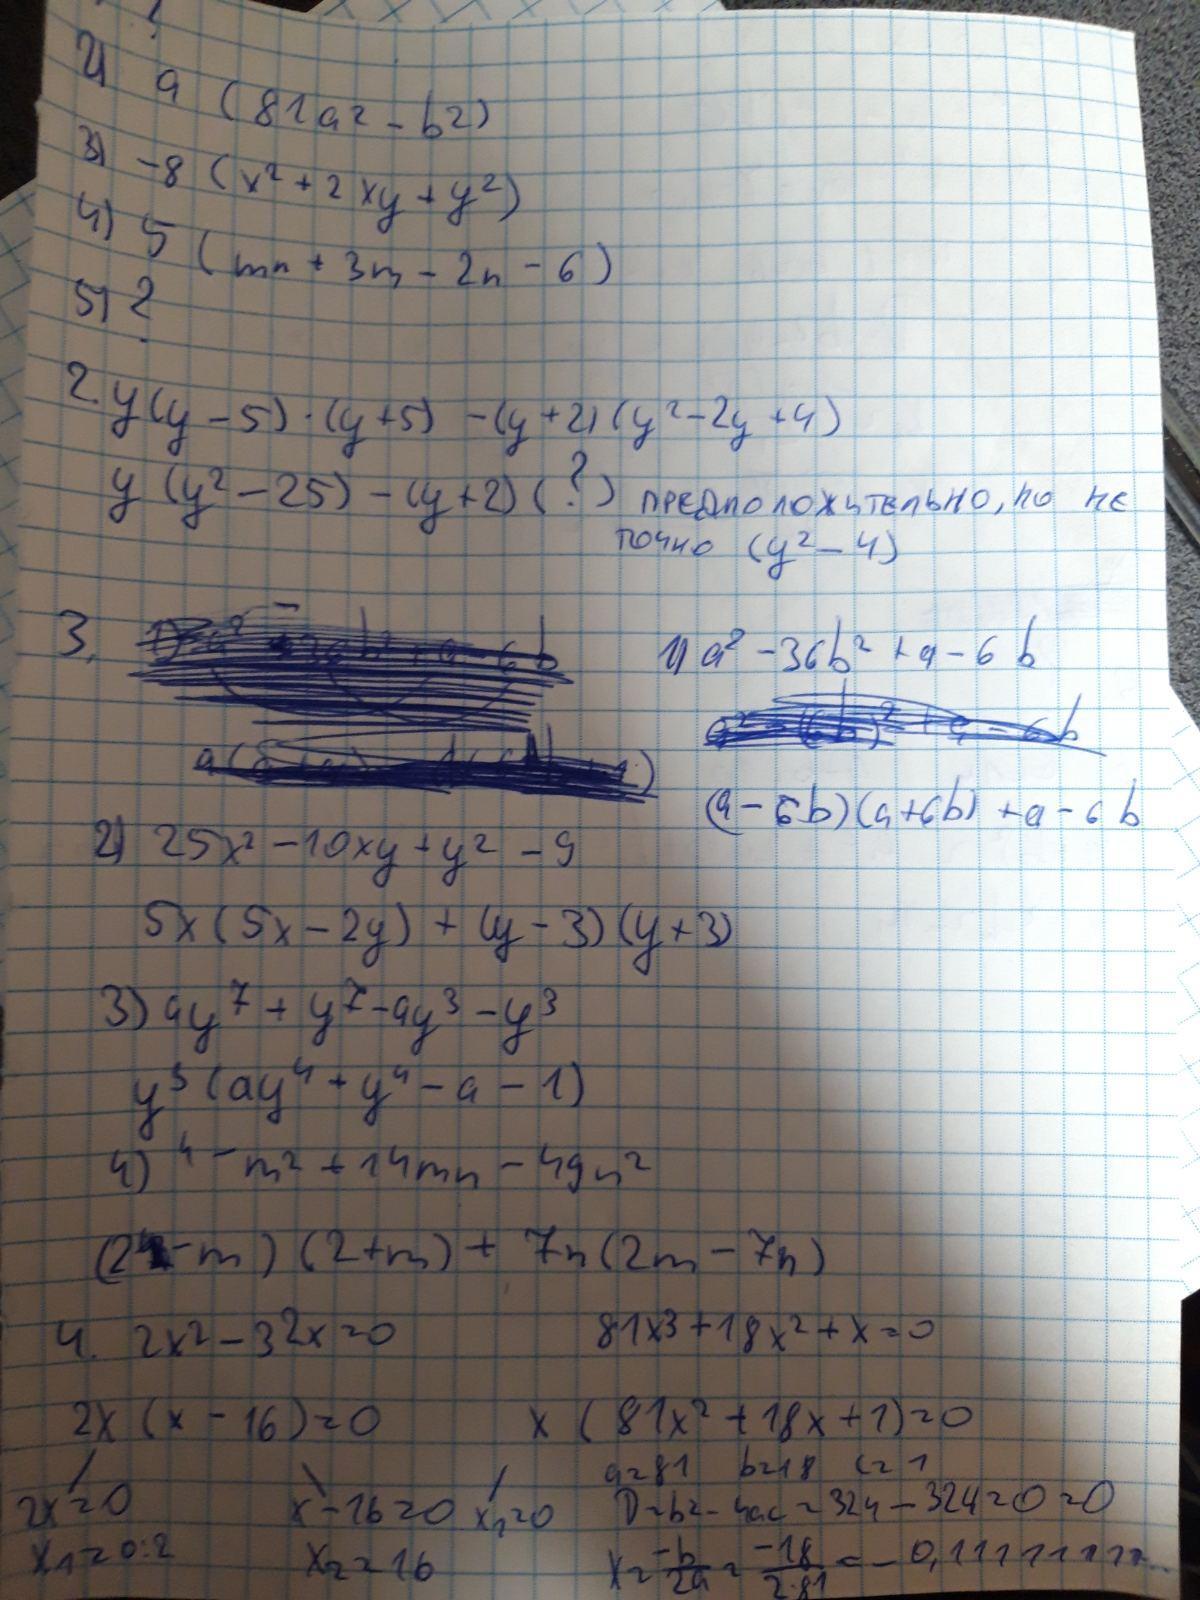 2) a (81a² - b²)
3) -8 (x² + 2xy + y²)
4) 5 (mn + 3m - 2n - 6)
5) ?
2. y(y - 5) · (y + 5) - (y + 2) (y² - 2y + 4)
y (y² - 25) - (y + 2) (?) предположительно, но не
точно (y² - 4)
3. 1) a² - 36b² + a - 6b
(a - 6b)(a + 6b) + a - 6b
2) 25x² - 10xy + y² - 9
5x (5x - 2y) + (y - 3) (y + 3)
3) ay⁷ + y⁷ - ay³ - y³
y³ (ay⁴ + y⁴ - a - 1)
4) 4 - m² + 14mn - 49n²
(2 - m) (2 + m) + 7n (2m - 7n)
4. 2x² - 32x = 0 81x³ + 18x² + x = 0
2x (x - 16) = 0 x (81x² + 18x + 1) = 0
a = 81 b = 18 c = 1
2x = 0 x - 16 = 0 x₁ = 0 D = b² - 4ac = 324 - 324 = 0 = 0
x₁ = 0:2 x₂ = 16 x = -b/2a = -18/2·81 = -0,11111111...